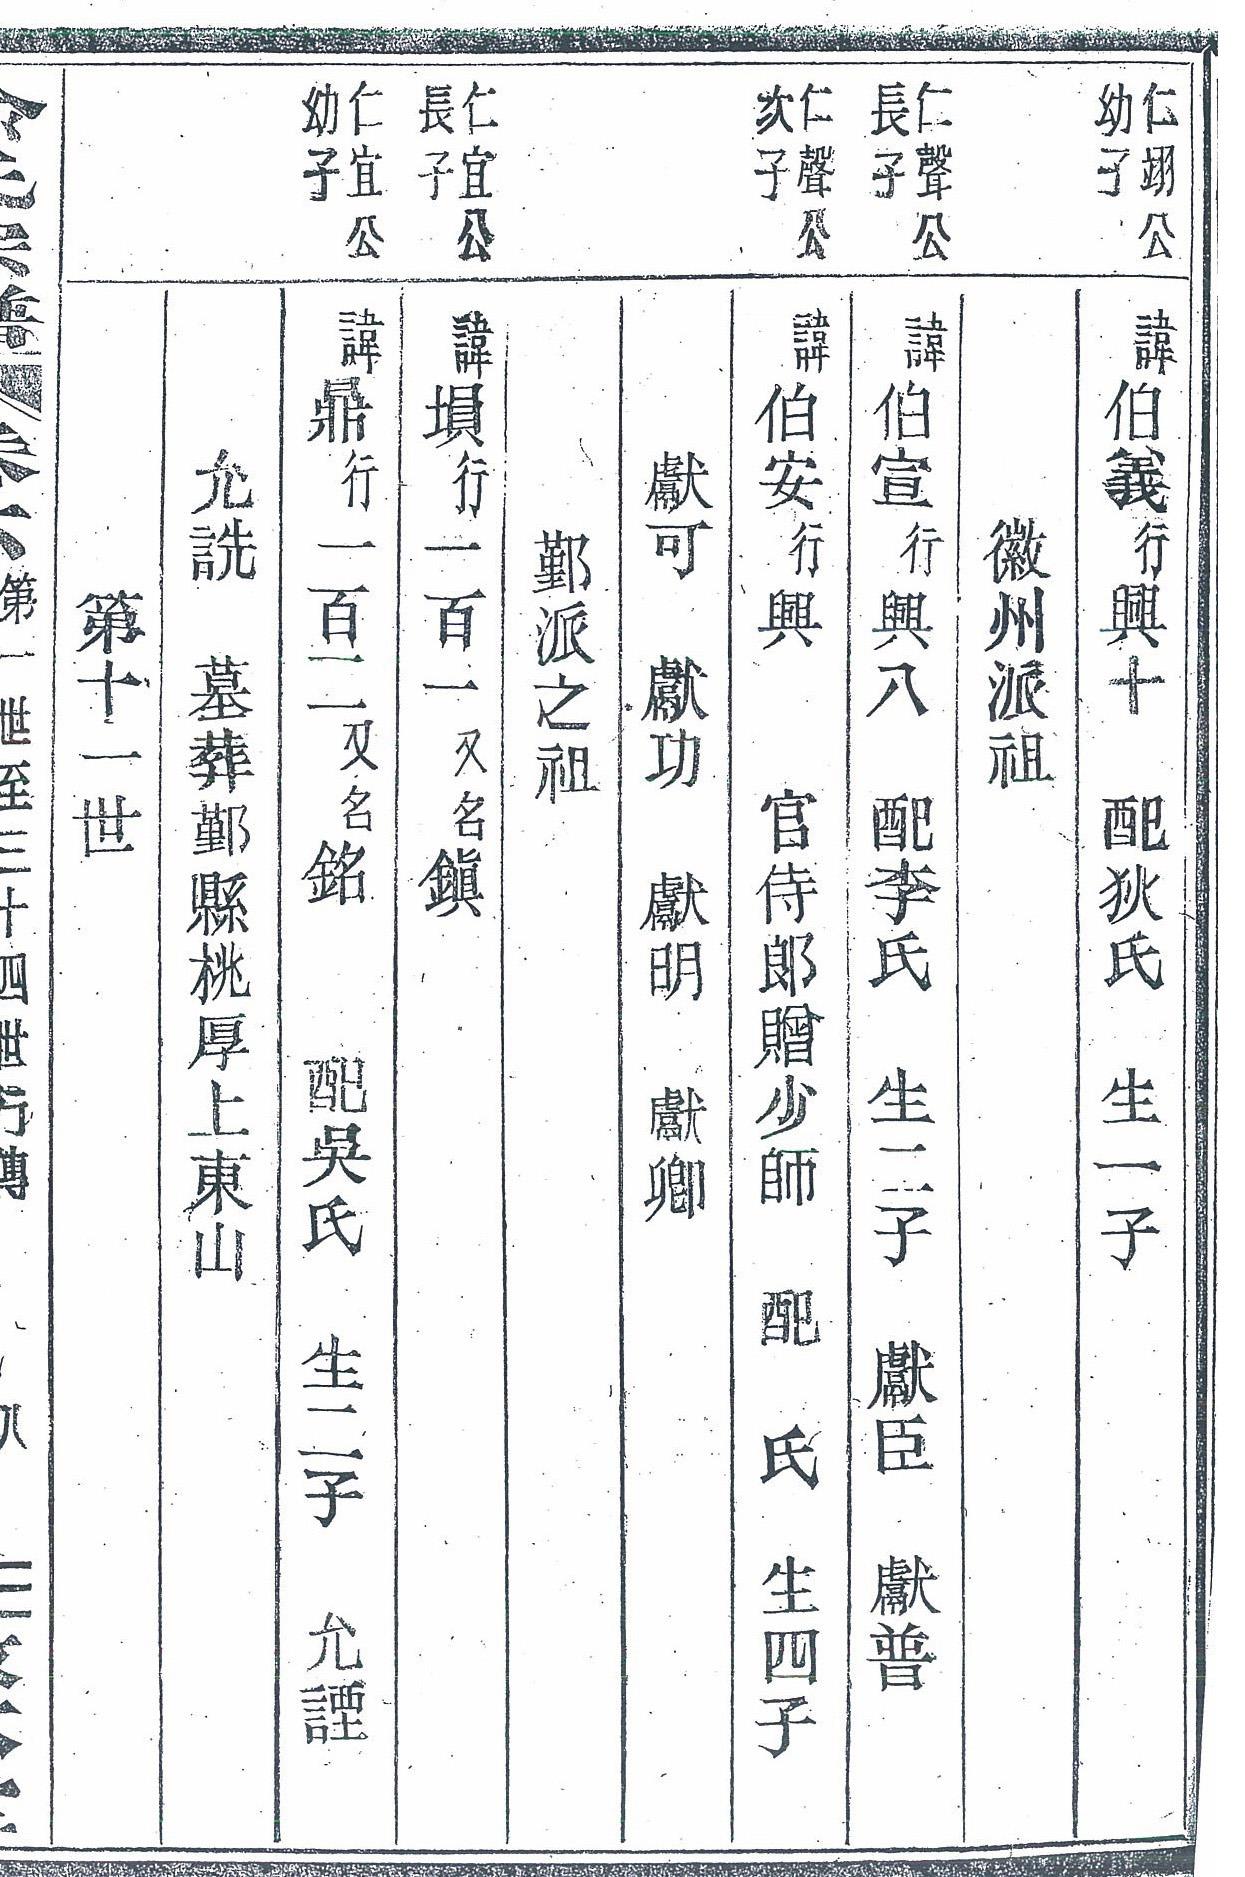 仁翊公
幼子
諱伯義行興十　配狄氏　生一子
徽州派祖
仁聲公
長子
諱伯宣行興八　配李氏　生二子　獻臣　獻普
仁聲公
次子
諱伯安行興　　官侍郎贈少師　配　氏　生四子
獻可　獻功　獻明　獻卿
鄞派之祖
仁宜公
長子
諱塤行一百一又名鎭
仁宜公
幼子
諱鼎行一百二又名銘　　配吳氏　生二子　允諲
允詵　墓葬鄞縣桃厚上東山
第十一世
第一世至三十四世行傳